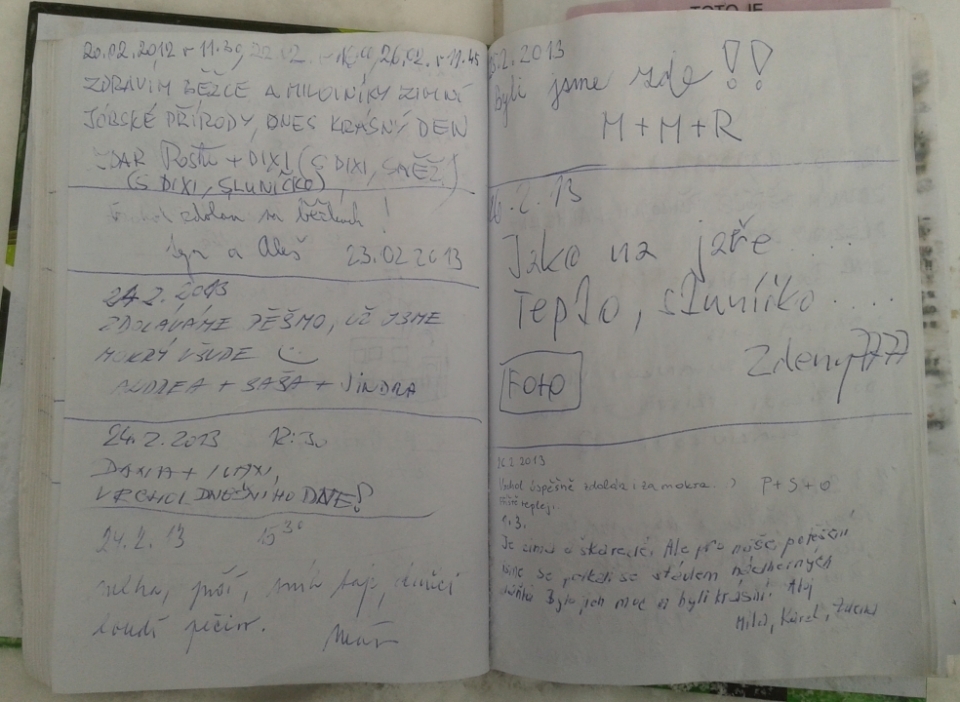 TOTO JE
20.02.2012 v 11.30, 22.02. v 16.00, 26.02. v 11.45
ZDRAVÍM BĚŽCE A MILOVNÍKY ZIMNÍ
PŘÍRODY, DNES KRÁSNÝ DEN
ZDAR + DIXI (S DIXI, SNĚŽ)
(S DIXI, SLUNÍČKO)
zdolán na běžkách!
a Aleš 23.02 2013
24.2. 2013
ZDOLÁVÁME PĚŠMO, UŽ JSME
MOKRÝ VŠUDE
ANDREA + SAŠA + JINDRA
24.2.2013 12:30
VRCHOL DNEŠNÍHO DNE!
24.2.13 15 30
mlha, prší, sníh taje,
25.2.2013
Byli jsme zde!!
M + M + R
26.2.13
Jako na jaře ....
Teplo, sluníčko ....
Zdeny7777
FOTO
26.2.2013
Vrchol úspěšně zdolán i za mokra. :) P+S+O
Příště teplej.
1.3.
Je zima a škaredě. Ale pro naše potešení
sme se potkali se stádem nádherných
Bylo jich moc a byli krásní. Ahoj
Mila, Karel, Zuzana